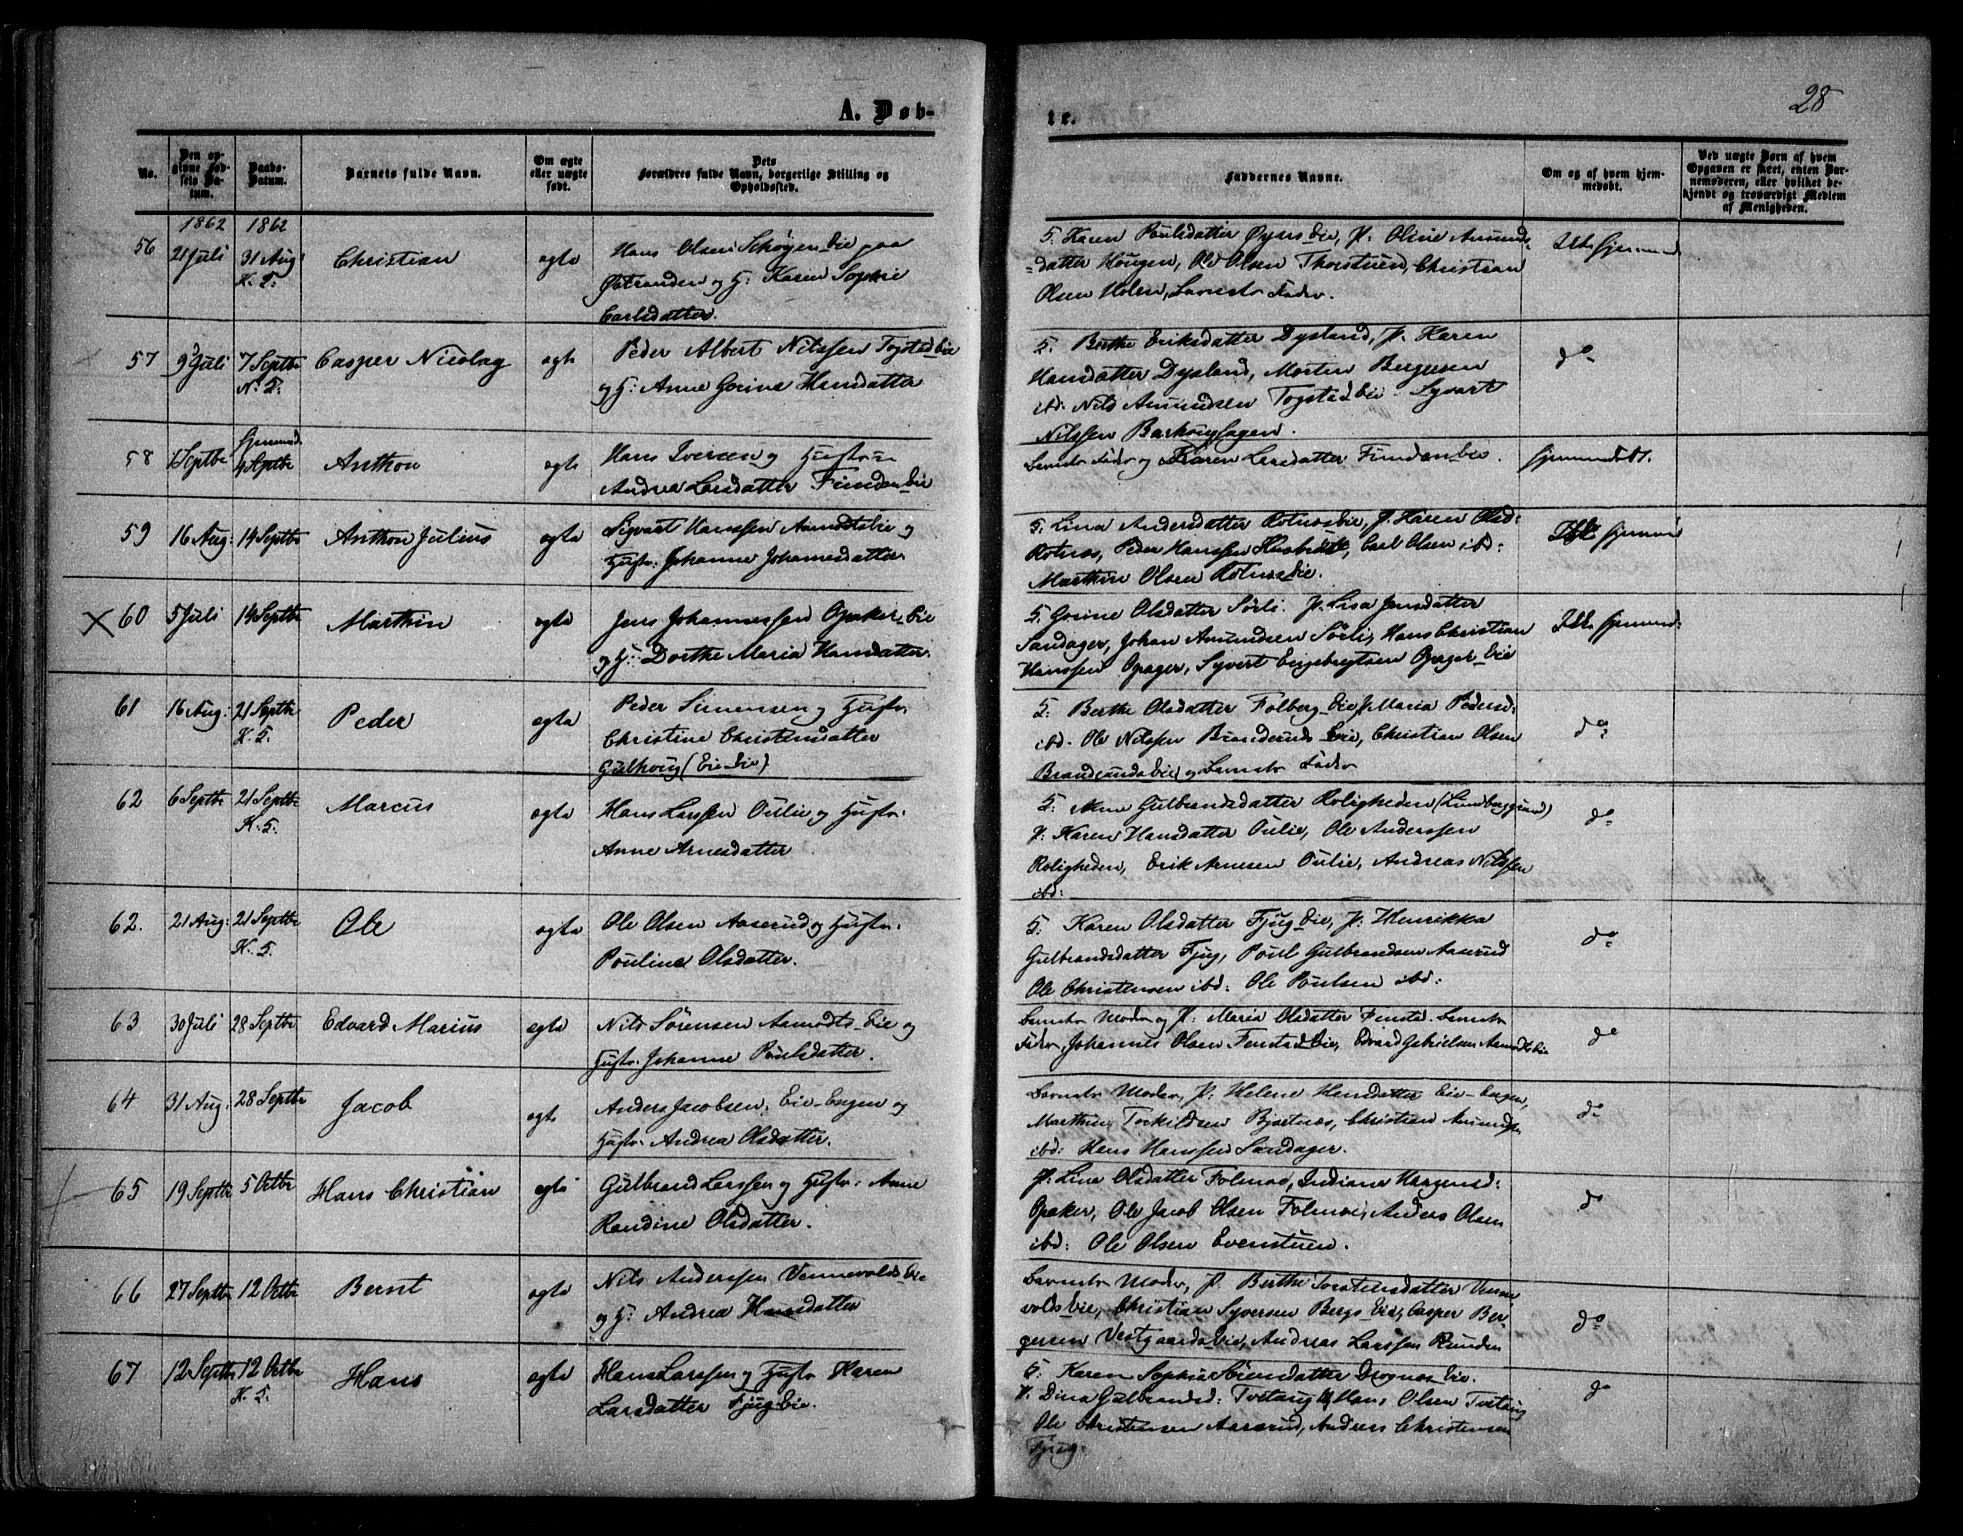 28
A. Døb-
te.
No.
Den op-
givne Fød-
sels Da-
tum.
Daabs-
Datum.
Barnets fulde Navn.
Om ægte
eller uægte
født.
Dets
Forældres fulde Navn, borgerlige Stilling og
Opholdssted.
Faddernes Navne.
Om og af hvem hjem-
medøbt.
Ved uægte Børn af hvem
Opgaven er skeet, enten Bar-
nemoderen, eller hvilket be-
kjendt og troværdigt Medlem
af Menigheden.
1862
1862
56
21 Juli
31 Aug:
K. T.
Christian
ægte
Hans Olsen Skøyen Eie paa
Østranden og H: Karen Sophie
Carlsdatter.
5. Karen Poulsdatter Eie, P. Olive Amunds-
datter Hougen, Ole Olsen Thorstuen, Christian
Olsen Holen, Barnets Fader.
Ikke hjemmed
57
9 Juli
7 Septbr
N. T.
Casper Nicolay
ægte
Peder Albert Nilssen Togstad Eie
og H: Anne Gorine Hansdatter
5. Berthe Eriksdatter Dysland, P. Karen
Hansdatter Dysland, Morten Bergersen
ibd: Nils Amundsen Togstad Eie Syvart
Nilssen
do
58
1 Septbr
Hjemmed.
4 Septbr
Anthon
ægte
Hans Iversen og Hustru
Andrea Larsdatter Finden Eie
Barnets Fader og Karen Larsdatter Finden Eie.
hjemmedøbt.
59
16 Aug:
14 Septbr
Anthon Julius
ægte
Sigvart Hanssen Aamodts Eie og
Hustr: Johanne Johannesdatter
5. Lina Andersdatter Rotnes Eie, P. Karen Olsd:
Rotnes, Peder Hanssen Carl Olsen ibd:
Marthin Olsen Rotnes Eie.
Ikke hjemmed
60
5 Juli
14 Septbr
Marthin
ægte
Jens Johannessen Opaker Eie
og H: Dorthe Maria Hansdatter.
5. Gorine Olsdatter Sørli. P. Lisa Jensdatter
Sandager, Johan Amundsen Sørli, Hans Christian
Hanssen Opager, Syvert Engebregtsen Opager Eie
Ikke hjemmed:
61
16 Aug:
21 Septbr
K. T.
Peder
ægte
Peder Simensen og Hustr.
Christine Christensdatter
Gulhoug (Eie Eie)
5. Berthe Olsdatter Folberg Eie, P. Maria Pedersd:
ibd. Ole Nilssen Branderuds Eie, Christian Olsen
Branderuds Eie og Barnets Fader
do
62
6 Septbr
21 Septbr
K. T.
Marcus
ægte
Hans Larssen Oulie og Hustr:
Anne Arnesdatter
5. Anne Gulbrandsdatter Roligheden (Lundberggrund)
P: Karen Hansdatter Oulie, Ole Anderssen
Roligheden, Erik Arnesen Oulie, Andreas Nilssen
ibd:
do
62.
21 Aug:
21 Septbr
K. T.
Ole
ægte
Ole Olsen Aaserud og Hustr:
Pouline Olsdatter.
5. Karen Olsdatter Fjug Eie, P. Henrikka
Gulbrandsdatter Fjug, Poul Gulbrandsen Aaserud
Ole Christensen ibd: Ole Poulsen ibd:
do
63
30 Juli
28 Septbr
Edvard Marius
ægte
Nils Sørensen Aamodts Eie og
Hustr. Johanne Poulsdatter.
Barnets Moder og P. Maria Olsdatter Fenstad. Barnets
Fader, Johannes Olsen Fenstad Eie, Edvard Gabrielsen Aamodt Eie
do
64
31 Aug:
28 Septbr
Jacob
ægte
Anders Jacobsen. Eie-Engen og
Hustr. Andrea Olsdatter.
Barnets Moder, P. Helene Hansdatter Eie-Engen,
Marthin Torkildsen Bjørtnes, Christian Amunds.
ibd: Hans Hanssen Sandager.
do
65
19 Septbr
5 Octbr
Hans Christian
ægte
Gulbrand Larssen og Hustr. Anne
Randine Olsdatter.
P. Lina Olsdatter Folmoe, Indiana Haagensd:
Opaker, Ole Jacob Olsen Folmoe, Anders Olsen
ibd: Ole Olsen Evenstuen.
do
66
27 Septbr
12 Octbr
Bernt
ægte
Nils Anderssen Vennevolds Eie
og H: Andrea Hansdatter
Barnets Moder, P. Berthe Torstensdatter Venne-
volds Eie, Christian Syversen Bergs Eie, Casper Ber-
gersen Vestgaards Eie, Andreas Larssen Runden
do
67
12 Septbr
12 Octbr
K. T.
Hans
ægte
Hans Larssen og Hustr Karen
Larsdatter Fjug Eie.
5. Karen Sophie Eie.
P. Dina Gulbrandsd: Tvetang, Hans Olsen Tvetang
Ole Christensen Aaserud, Anders Christensen
Fjug.
do